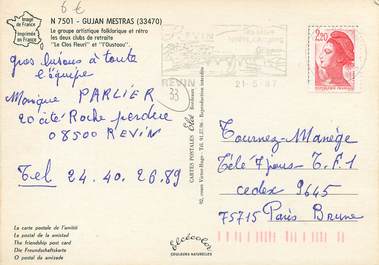 6 €
Image de France
Imprimée en France
N 7501 - GUJAN MESTRAS (33470)
Le groupe artistique folklorique et rétro
les deux clubs de retraite
"Le Clos Fleuri" et "l'Oustaou".
gros bisous à toute
l'équipe
Monique PARLIER
20 cité Roche perdue
08500 REVIN
Tel 24.40.26.89
La carte postale de l'amitié
La postal de la amistad
The friendship post card
Die Freundschaftskarte
O postal da amizade
CARTES POSTALES Elcé
REVIN
REVIN
21-5-87
2,20
Tournez-Manège
Télé 7 jours T.F.1
cedex 9645
75715 Paris Brune
Elcécolor
COULEURS NATURELLES